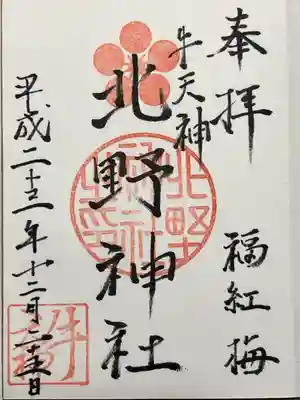 奉拝
福紅梅
牛天神
北野神社
北野
神社
之印
平成二十三年十二月二十三日